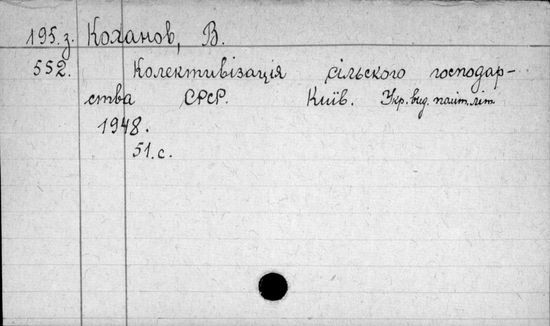 195.з. Коханов, В.
552. Колективізація сільского господар-
ства СРСР. Київ. Укр. вид. політ. літ.
1948.
51. с.